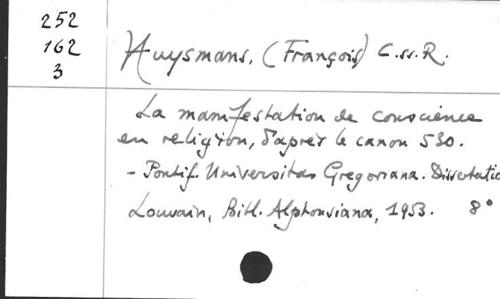 252
162
3
Huysmans, (François) C.ss.R.
La manifestation de conscience
en religion, d'après le canon 530.
- Pontif. Universitas Gregoriana. Dissertatio
Louvain, Bibl. Alphonsiana, 1953. 8°